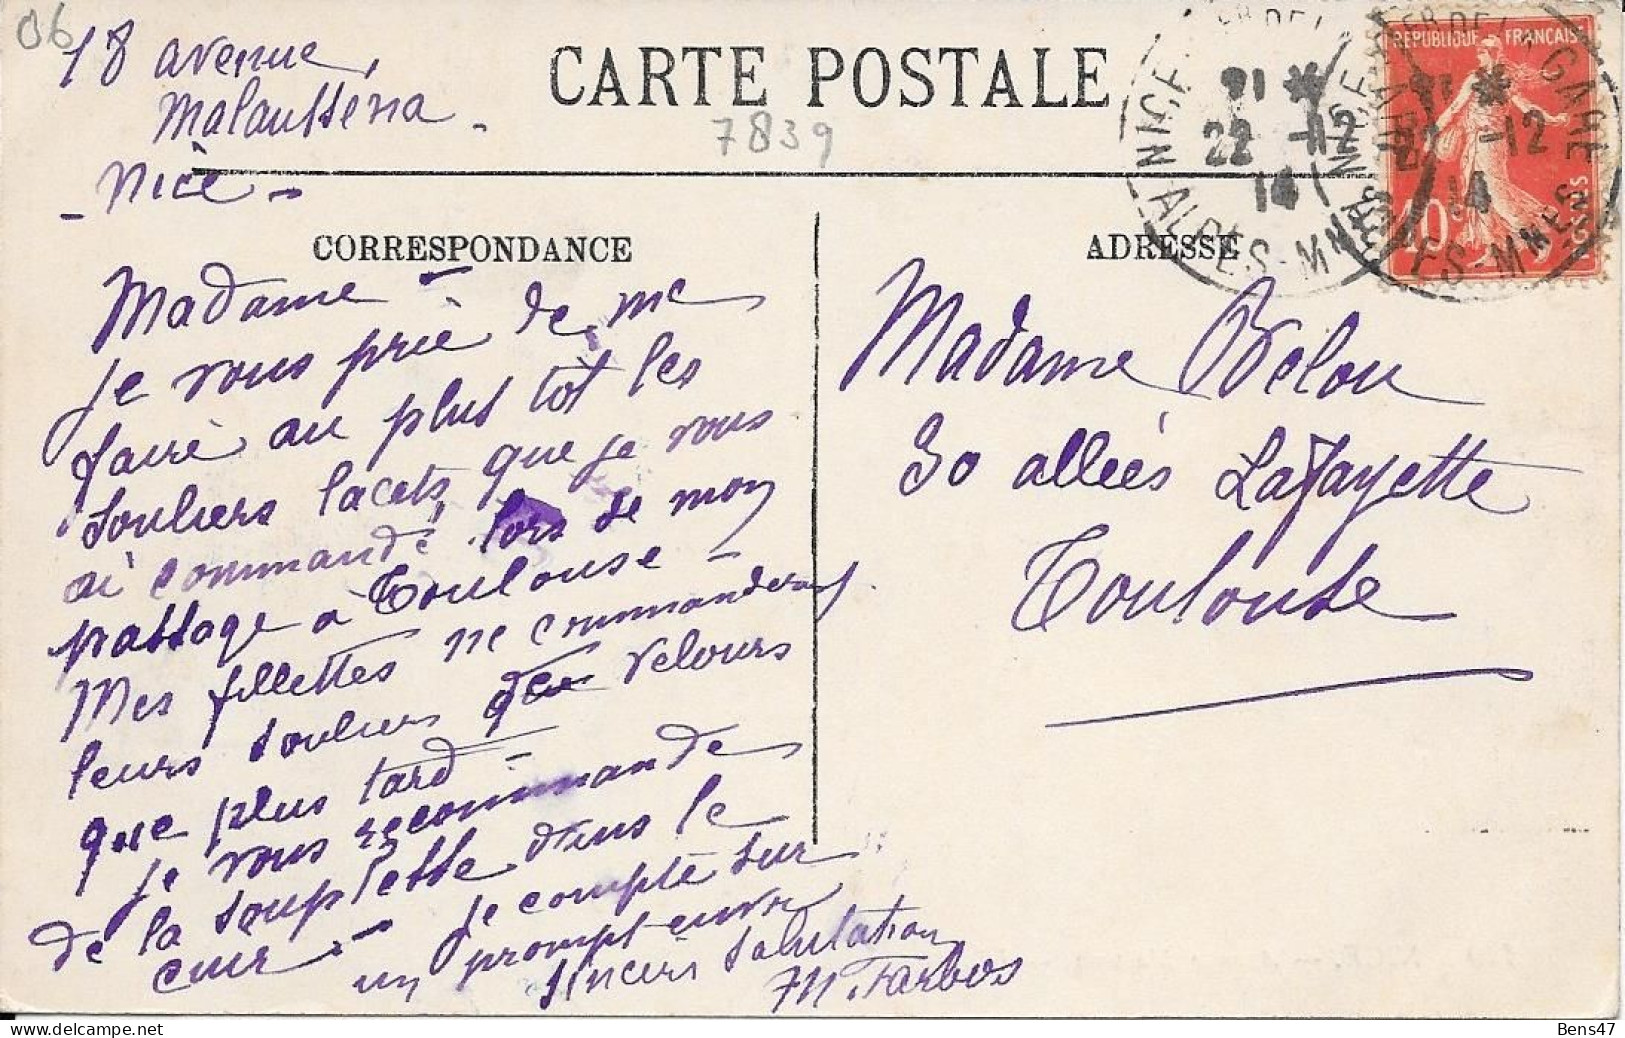 06
18 avenue
Malaussena -
- Nice -
CARTE POSTALE
7839
NICE GARE
ALPES-MMES
22 -12
14
REPUBLIQUE FRANÇAISE
10
CORRESPONDANCE
ADRESSE
Madame -
je vous prie de me
faire au plus tot les
souliers lacets, que je vous
ai commandé, lors de mon
passage a Toulouse -
Mes fillettes ne commanderont
leurs souliers velours
que plus tard -
je vous recommande
de la souplesse dans le
cuir - je compte sur
un prompt envoi
sincère salutation
M. Tarbos
Madame Belou
30 allées Lafayette
Toulouse
Bens47